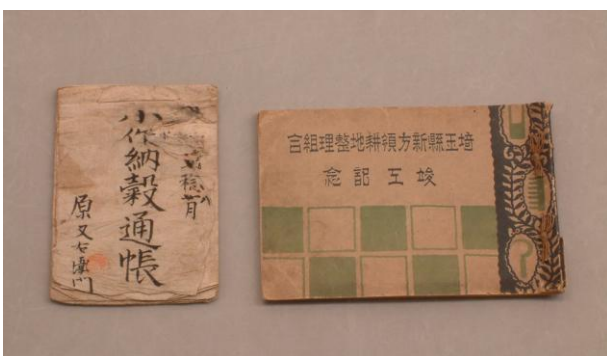 小作納穀通帳
原又右衛門
埼玉縣新方領耕地整理組合
竣工記念